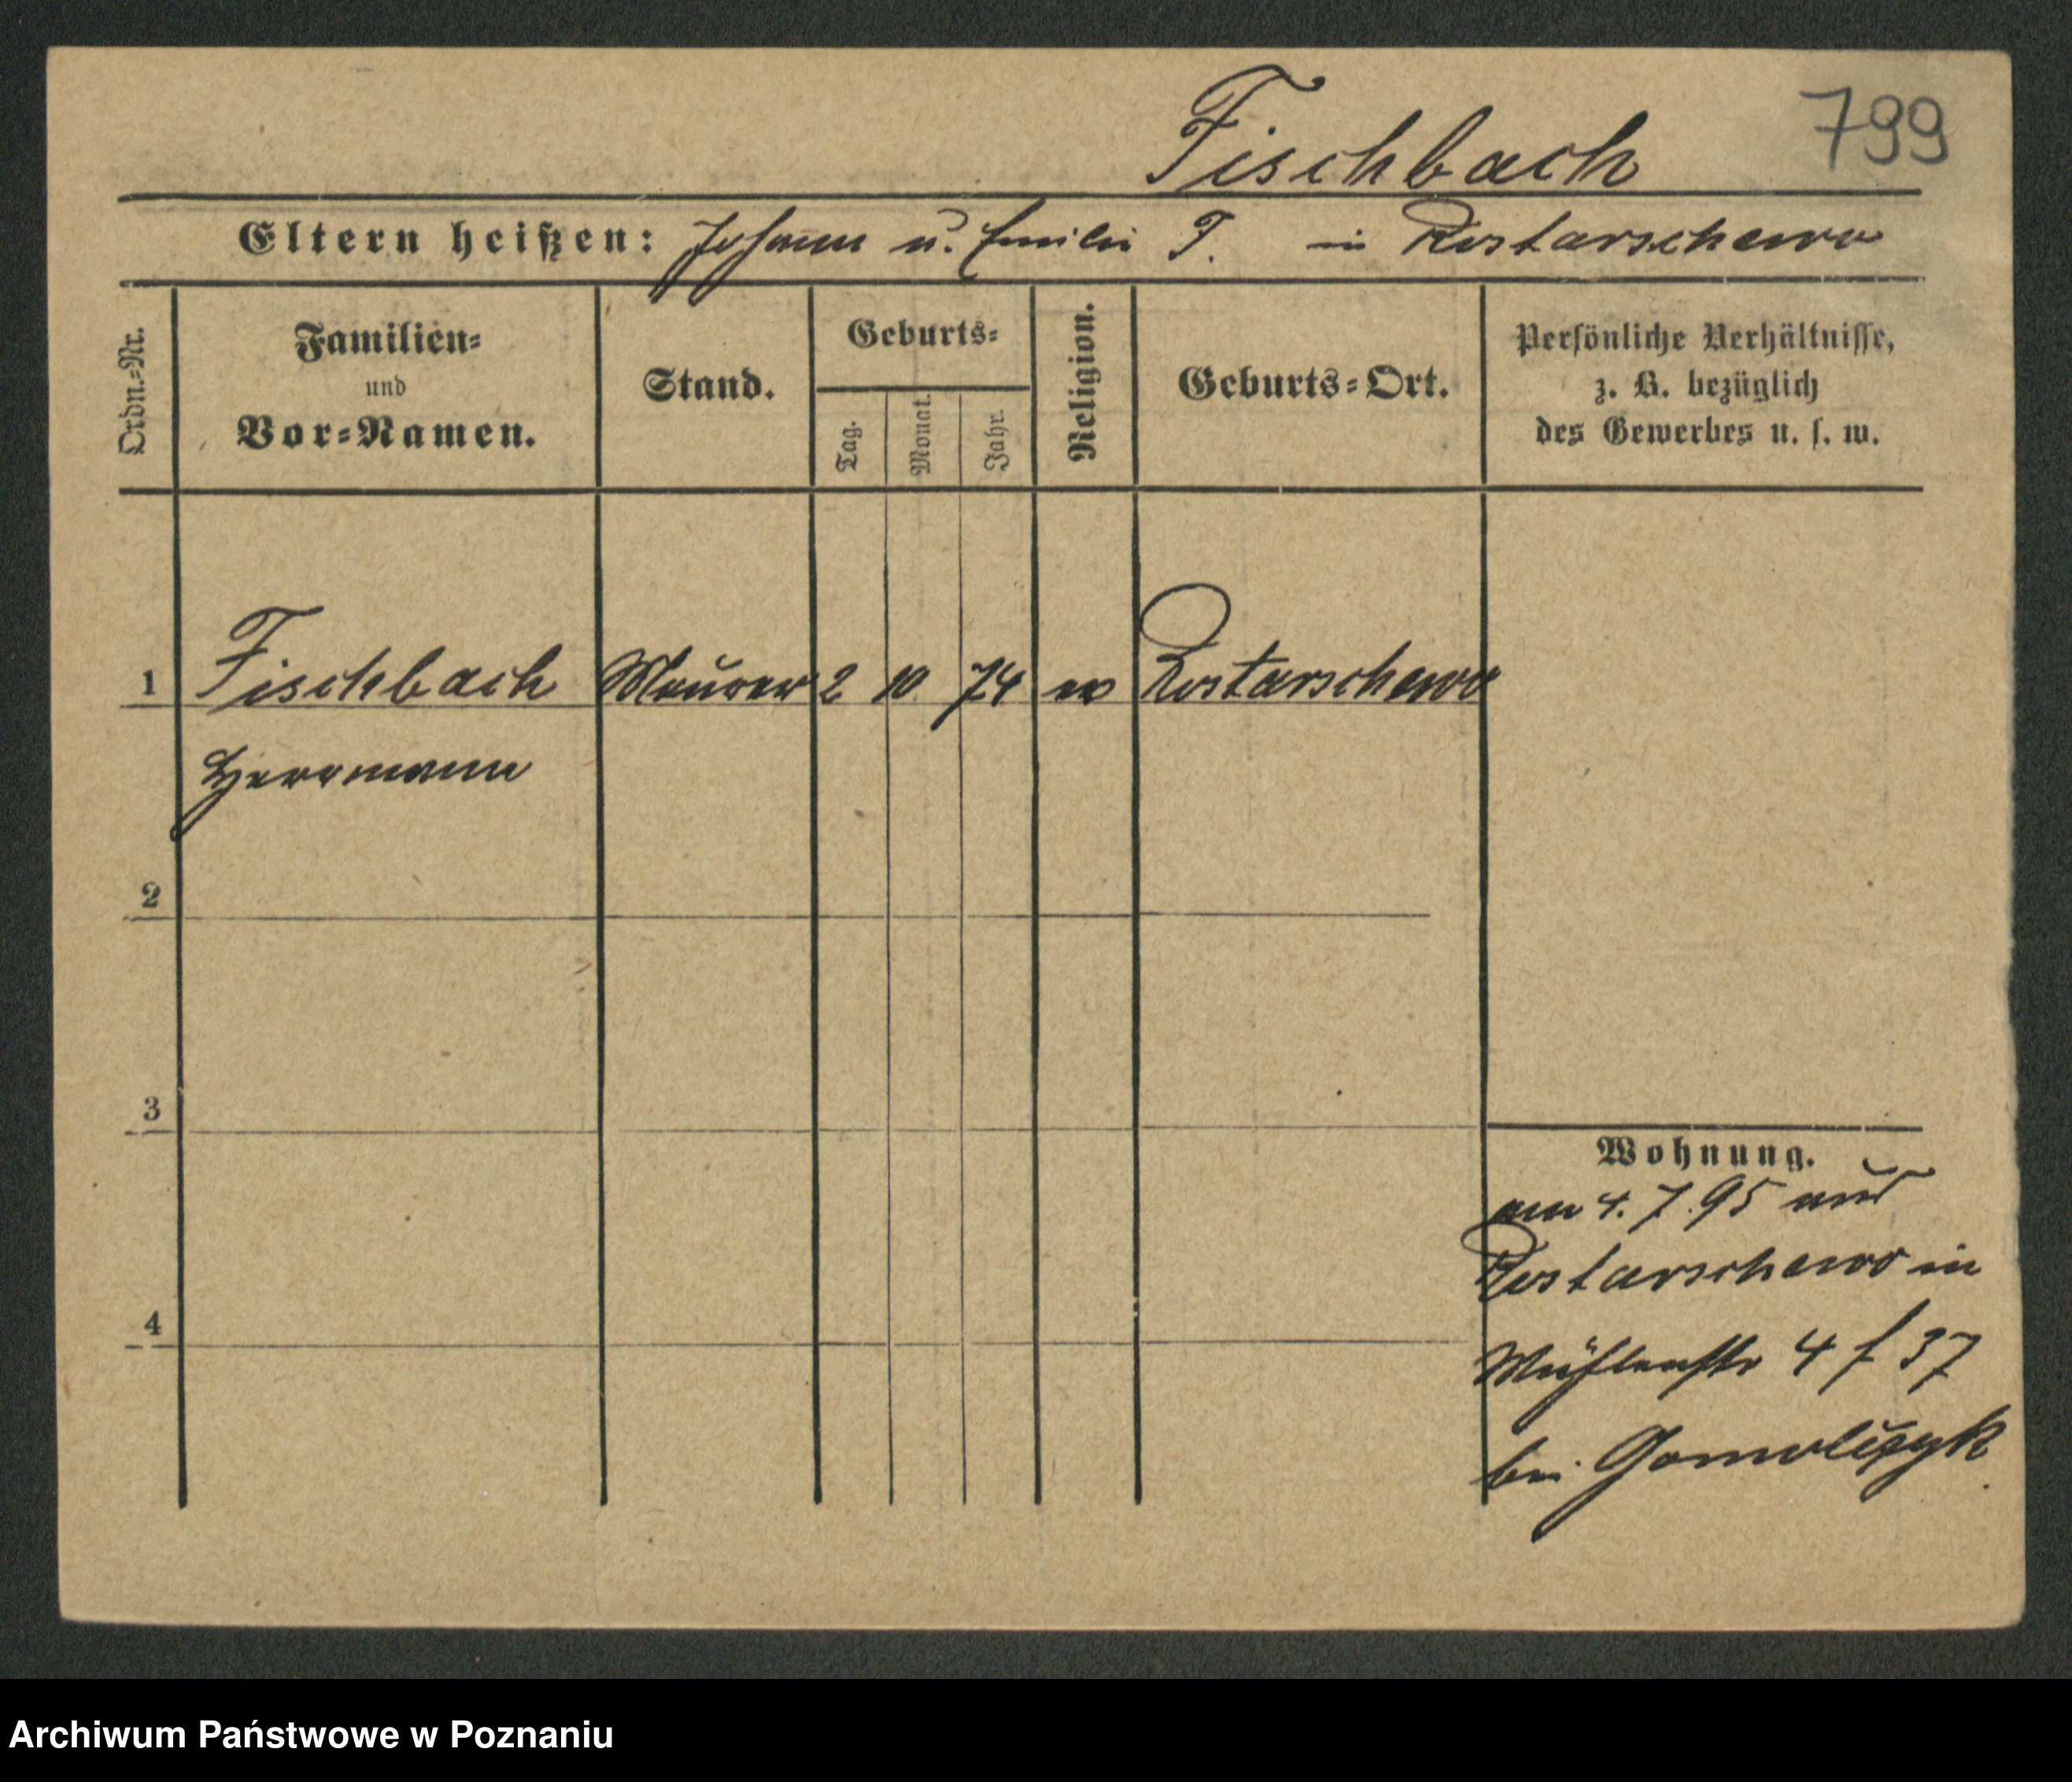 Fischbach 799
Eltern heißen: Johann u. Emilie F. in Rostarschewo
Ordn.-Nr.
Familien-
und
Vor-Namen.
Stand.
Geburts-
Tag.
Monat.
Jahr.
Religion.
Geburts-Ort.
Persönliche Verhältnisse,
z. B. bezüglich
des Gewerbes u. s. w.
1 Fischbach Maurer 2 10 74 ev Rostarschewo
Herrmann
2
3
4
Wohnung.
am 4. 7. 95 aus
Rostarschewo in
Mühlenstr 4 f 37
bei
Archiwum Państwowe w Poznaniu